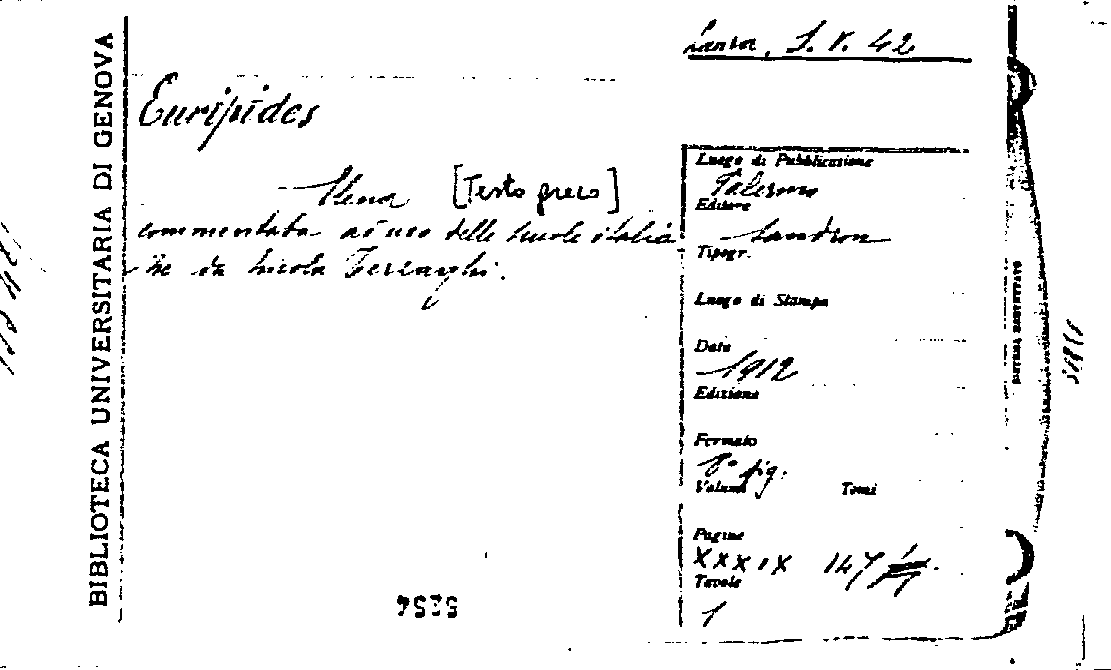 BIBLIOTECA UNIVERSITARIA DI GENOVA
Lanza, S. V. 42
Euripides
Elena [Testo greco]
commentata ad uso delle scuole italia
ne da Nicola Terzaghi.
Luogo di Pubblicazione
Palermo
Editore
Sandron
Tipogr.
Luogo di Stampa
Data
1912
Edizione
Formato
8° fig.
Volumi Tomi
Pagine
XXXIX 147
Tavole
1
5254